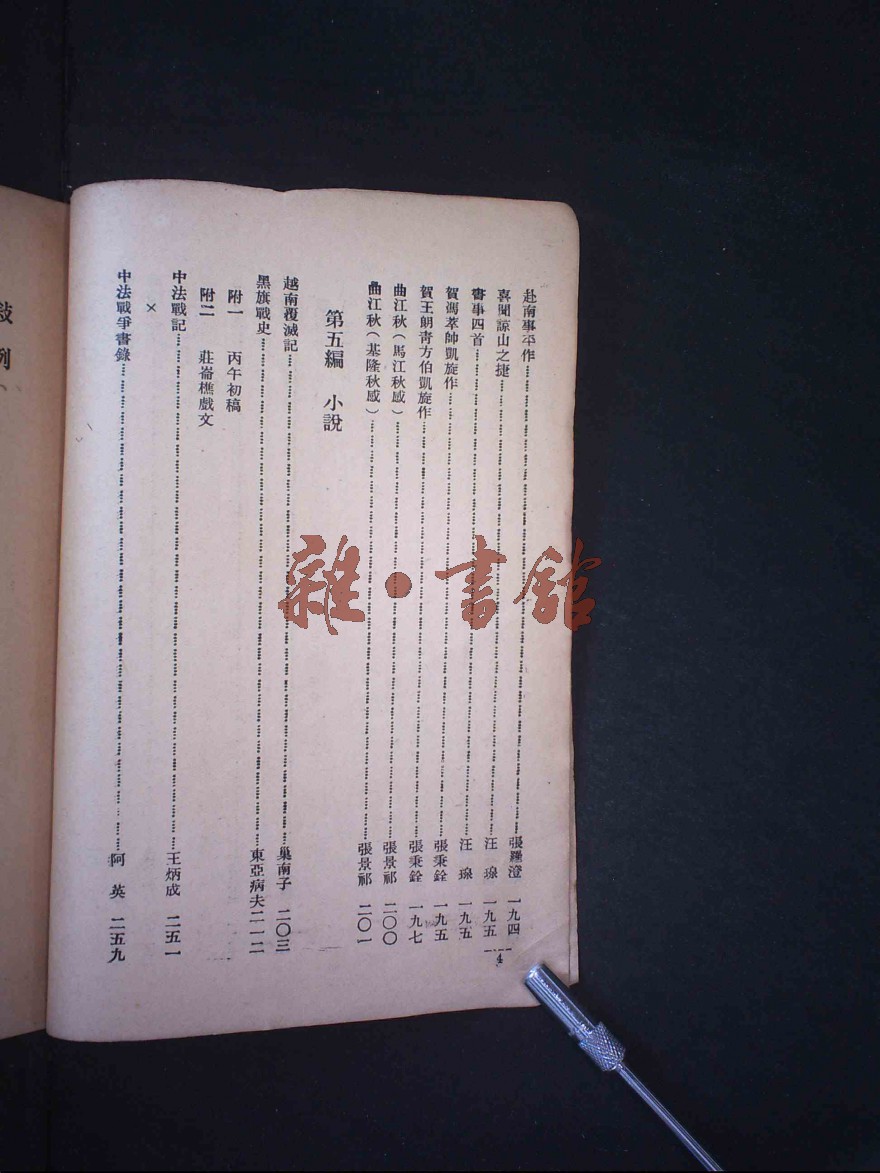 赴南事平作……張羅澄 一九四
喜聞諒山之捷……汪瑔 一九五
書事四首……汪瑔 一九五
賀馮萃帥凱旋作……張秉銓 一九五
賀王朗青方伯凱旋作……張秉銓 一九七
曲江秋(馬江秋感)……張景祁 二〇〇
曲江秋(基隆秋感)……張景祁 二〇一
第五編 小說
越南覆滅記……巢南子 二〇三
黑旗戰史……東亞病夫 二一二
附一 丙午初稿
附二 莊崙樵戲文
中法戰記……王炳成 二五一
×
中法戰爭書錄……阿英 二五九
4
例
雜·書館